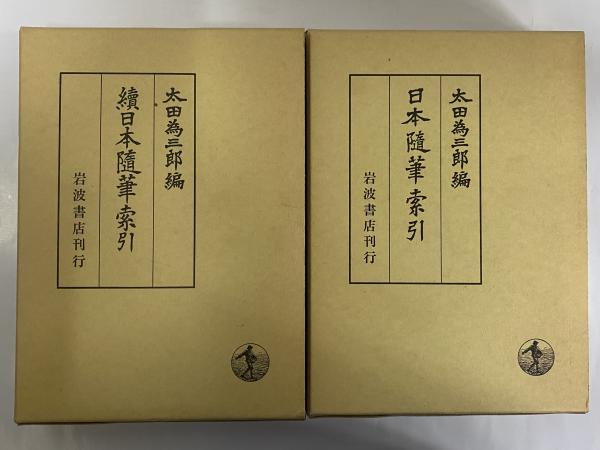 太田為三郎編
日本隨筆索引
岩波書店刊行
太田為三郎編
續日本隨筆索引
岩波書店刊行